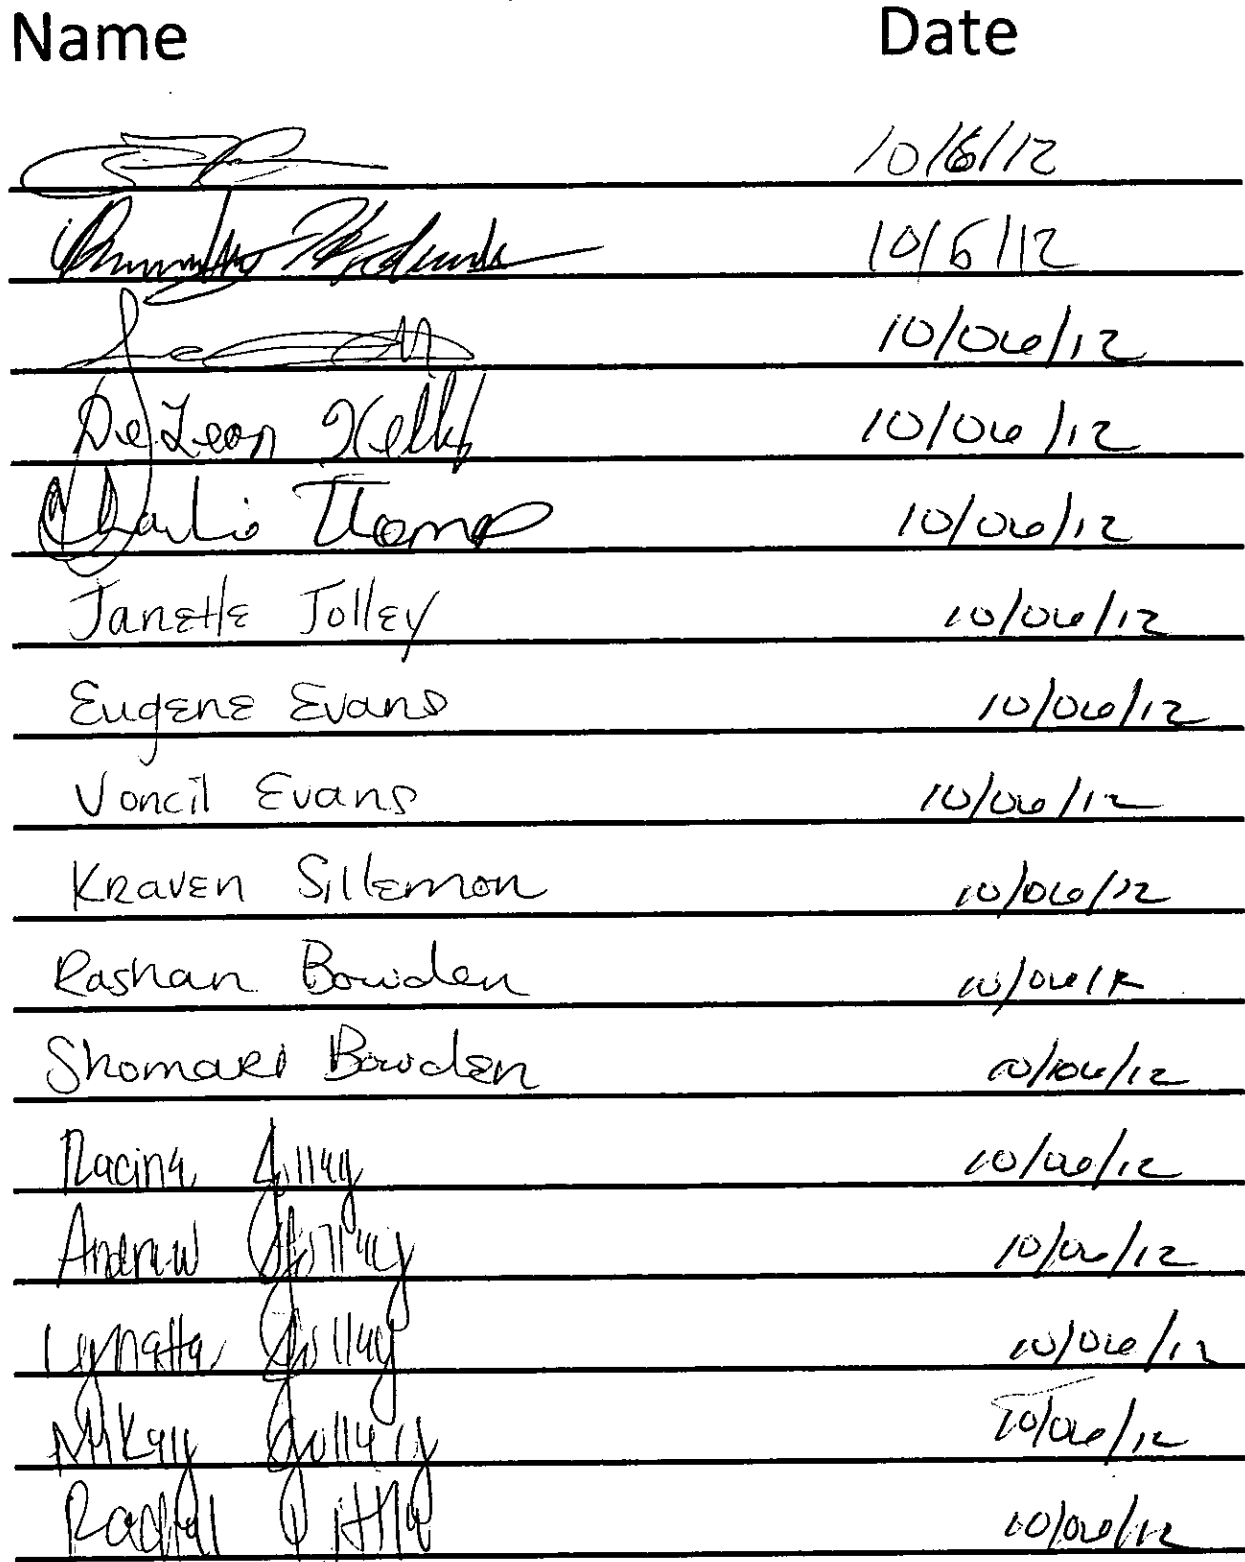 Name Date
10/6/12
10/6/12
10/06/12
DeLeon Kelly 10/06/12
Charlie Thomas 10/06/12
Janette Jolley 10/06/12
Eugene Evans 10/06/12
Voncil Evans 10/06/12
Kraven Sillemon 10/06/12
Rashan Bowden 10/06/12
Shomari Bowden 10/06/12
Racina Jolley 10/06/12
Andrew Jolley 10/06/12
Lynatta Jolley 10/06/12
Jolley 10/06/12
10/06/12